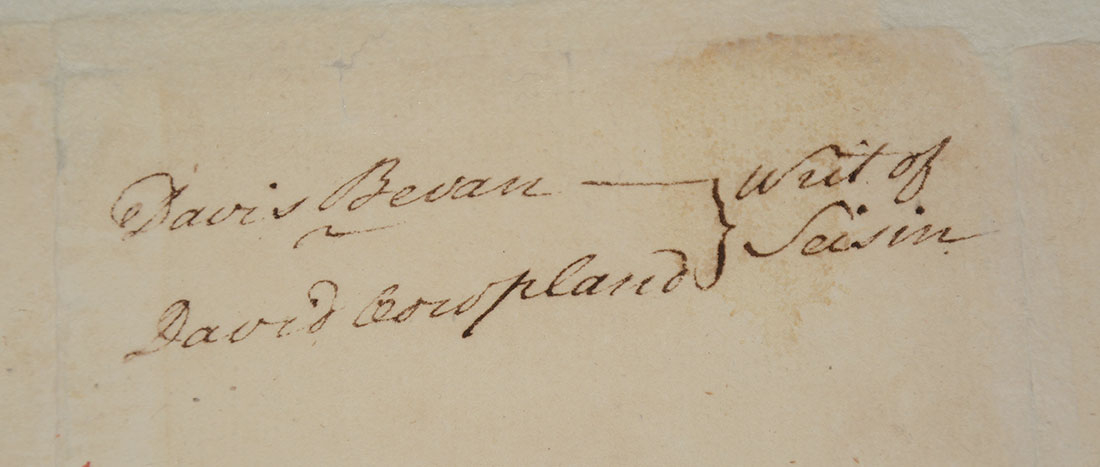 Davis Bevan — } Writ of
~ } Seisin
David Cowpland